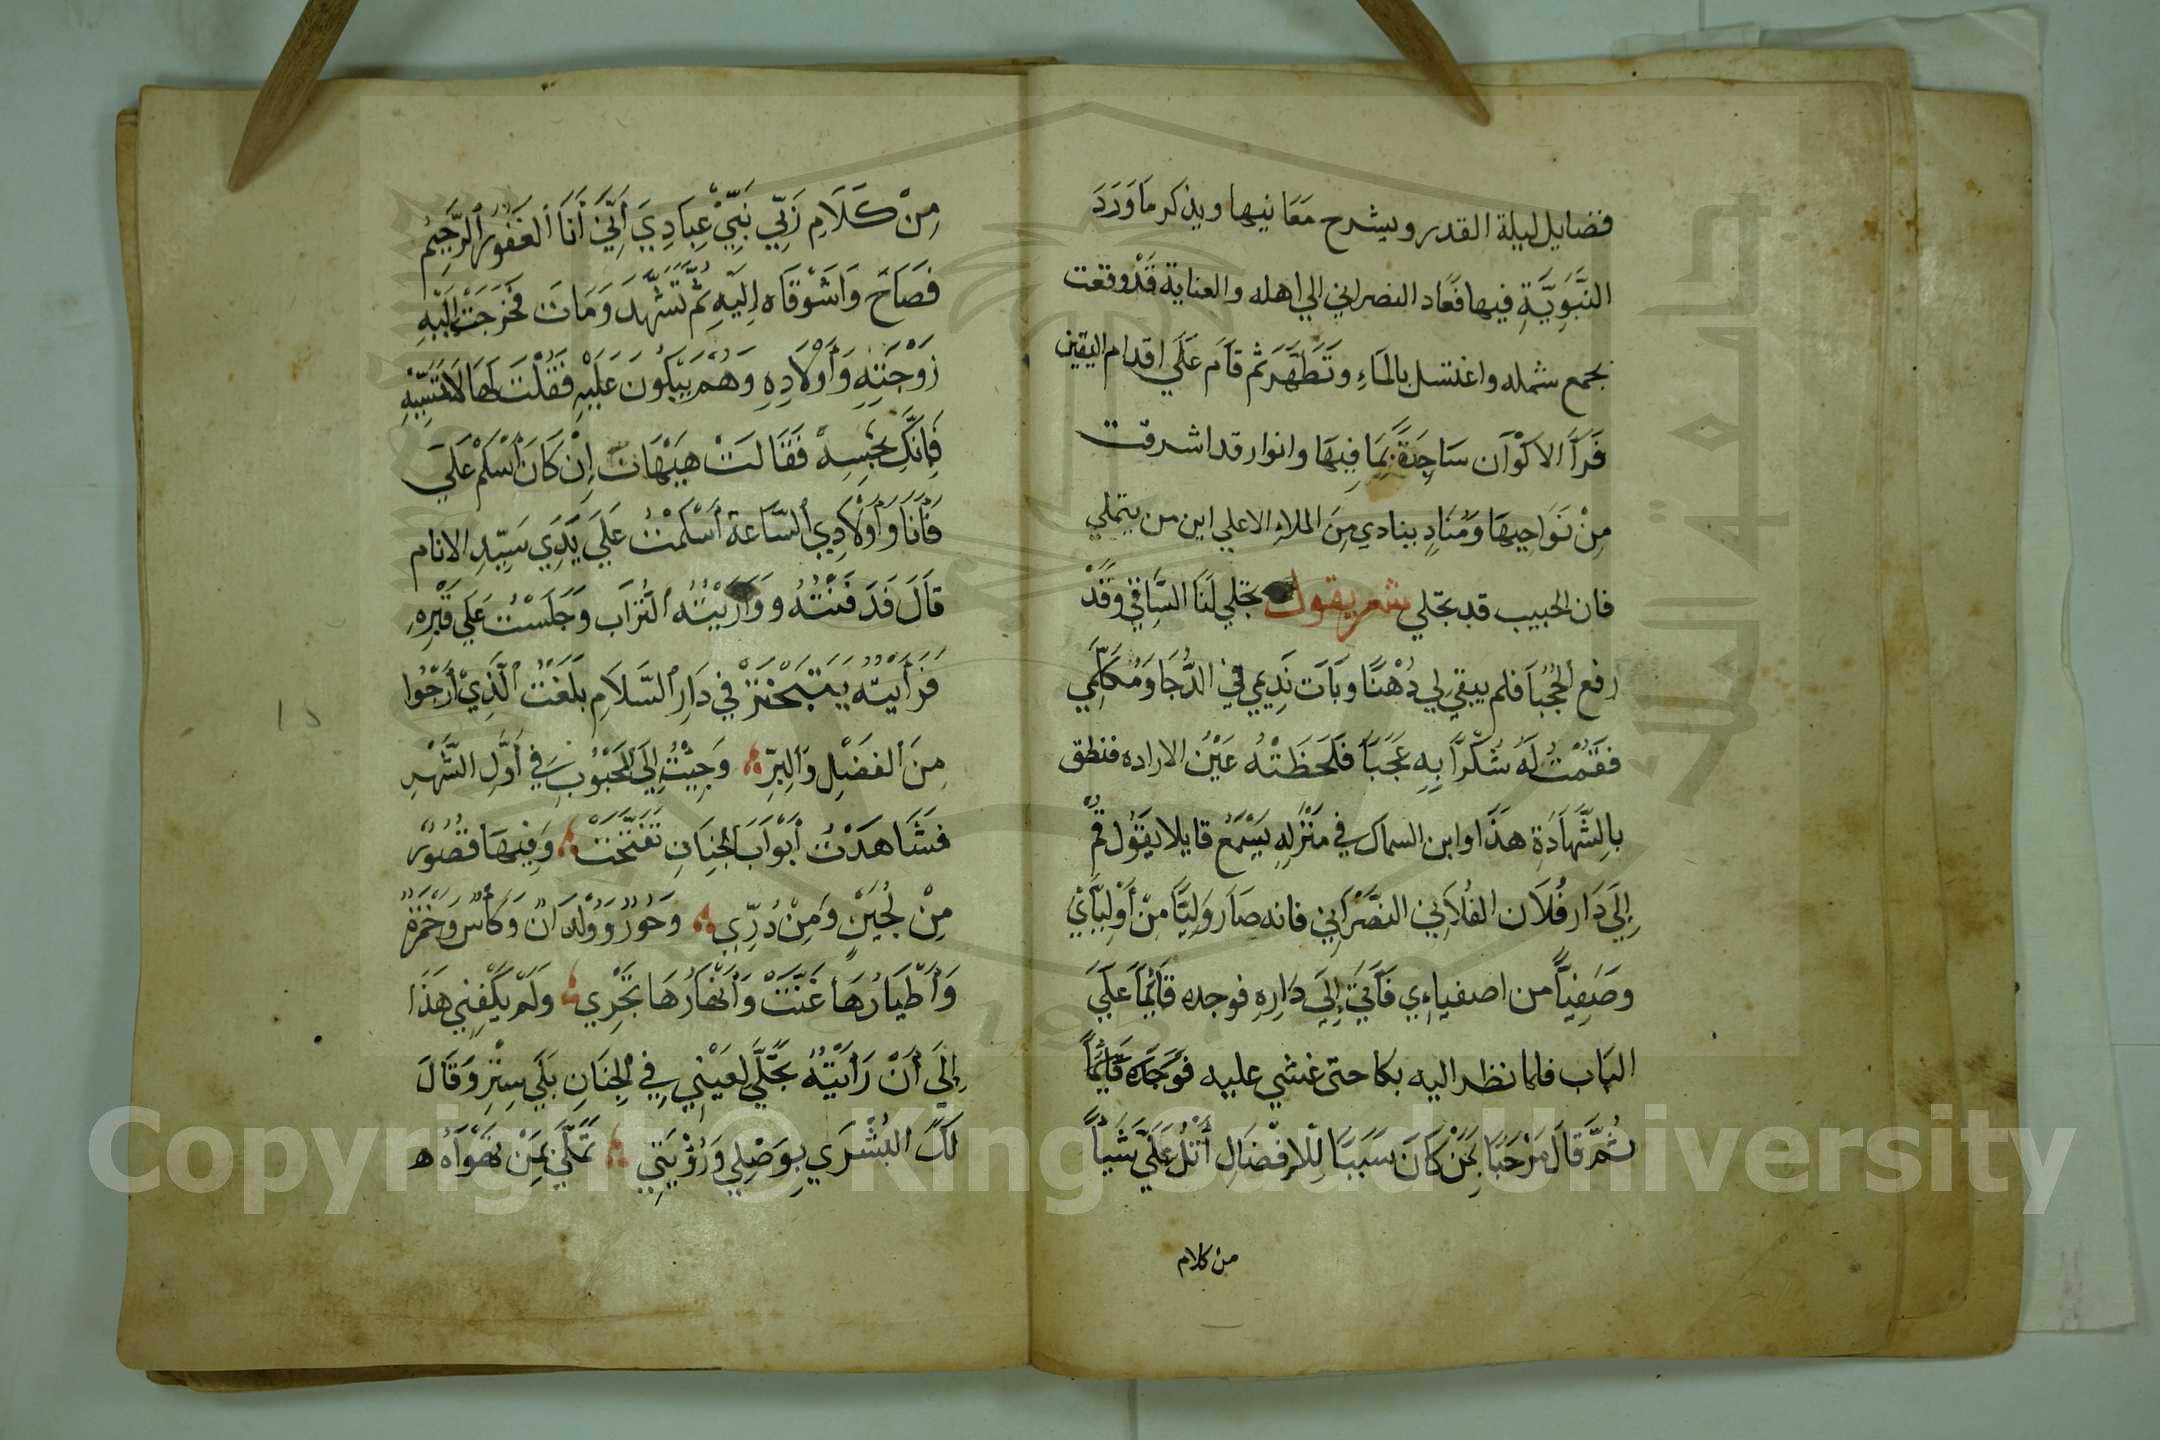 فضايل ليلة القدر ويشرح مَعَانيها ويذكر مَا وَرَدَ
النَّبَوِيَّةِ فيها فَعَاد النصراني الي اهله والعناية قَدْ وقعت
بجمع شمله واغتسل بالمَاءِ وَتَطَهَّرَ ثم قامَ عَلَي اقدام اليقين
فَرَاَ الاكْوَان سَاجِدَةً بِمَا فِيهَا وانوار قد اشرقت
مِنْ نَوَاحِيهَا وَمُنَادٍ ينادي مِنَ الملاءِ الاعلي اين من يتملي
فان الحبيب قد تجلي شعر يقول تجلي لَنَا السَّاقِي وَقَدْ
رفع الحُجُبَا فلم يبقي لي ذُهْنًا وَبَات نَدِيمي في الدُّجَا وَمُكَلِّمِي
فقَمْتُ لَهُ شُكْرًا بِهِ عَجَبًا فَلَحَظَتْهُ عَيْنُ الاراده فنطق
بِالشَّهَادَةِ هَذَا وابن السماك في مَنْزِلِهِ يَسْمَعُ قايلا يَقُول قُمْ
اِلَي دَار فُلَان الفُلَانِي النصْرَانِي فانه صَار وَلِيًّا مِنْ أَوْلِيَآئِي
وصَفِيًّا من اصفياءِي فَأتَي اِلَي دَارِهِ فوجده قَائِمًا عَلَي
البَاب فلما نظر اليه بكا حتى غشي عليه فوَجَدَه قَائِمًا
ثُمَّ قَالَ مَرْحَبًا بِمَنْ كَانَ سَبَبًا لِلإفْضَالِ أُتْلُ عَلَيَّ شَيْأً
من كلام
مِنْ كَلَامِ رَبِّي نَبِّيْ عِبَادِيَ اَنِّيَ أَنَا ٱلغَفُورُ ٱلرَّحِيمُ
فَصَاحَ وَاشَوْقَاه اِلَيْهِ ثُمَّ تَشَهَّدَ وَمَاتَ فَخَرَجَتْ اِلَيْهِ
زَوْجَتِهِ وَأَوْلَادِهِ وَهُمْ يَبْكُونَ عَلَيْهِ فَقُلْتُ لَهَا لَا تَمَسِّيْهِ
فَاِنَّكِ نَجِسِهْ فَقَالَتْ هَيْهَات اِنْ كَانَ أَسْلَمَ عَلَيَ
فَأَنَا وَأَوْلَادِي ٱلسَّاعَة أَسْلَمْتُ عَلَيَ يَدَيَ سَيِّدِ الانام
قَالَ فَدَفَنْتُهُ وَوَارَيْتُه ٱلتُرَاب وَجَلَسْتُ عَلَي قَبْرِهِ
فَرَأَيتُه يَتَبَخْتَرْ فِي دَارِ ٱلسَّلَامِ بَلَغْتُ ٱلَّذِيْ أَرْجُوا
مِنَ ٱلفَضْلِ وَٱلبِرِّ وَجِيْتُ اِلَي المَحْبُوبِ فِي أَوَّلِ الشَّهْرِ
فَشَاهَدْتُ أَبْوَابَ الجِنَانِ تَفَتَّحَتْ وَفِيهَا قُصُورٌ
مِنْ لُجَيْنٍ وَمِنْ دُرِّي وَحُورٌ وَوِلْدَانٌ وَكَأسٌ وَخَمْرَةٌ
وَأَطْيَارُهَا غَنَّتْ وَأَنْهَارُهَا تَجْرِي وَلَمْ يَكْفِنِي هَذَا
اِلَى أَنْ رَأَيْتُهُ تَجَّلَي لِعَيْنِي فِي الجِنَانِ بَلَي سِتْرِ وَقَالَ
لَكَ البُشْرَي بِوَصْلِي وَرُؤْيَتِي تَمَلَّي بِمَنْ تَهْوَاهُ
Copyright © King Saud University